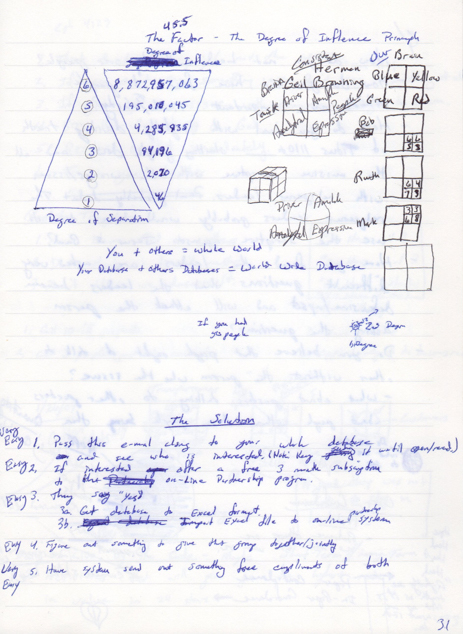 45.5
The Factor - The Degree of Influence Principle
Degree of Influence
6 8,972,957,063
5 195,010,045
4 4,295,935
3 94,196
2 2,070
1 46
Degree of Separation
Consistent
Herman
Brain
Being Geil Browning
Blue Yellow
Green Red
Task Driver Amiable People
Analytical Expressive
Bob
6 6
5 3
Ruth
6 4
7 9
Mark
7 7
6 8
Driver Amiable
Analytical Expressive
You + others = whole world
Your Database + others Databases = World Wide Database
If you had
people
2nd Degree
1st Degree
The Solution
Very
Easy 1. Pass this e-mail along to your whole database
and see who is interested. (Note Key it until opened/read)
Easy 2. If interested offer a free 3 month subscription
to the on-line Partnership program.
Easy 3. They say "yes"
3a Get database to Excel format
3b. Import Excel file to on-line partnership system
Easy 4. Figure out something to give the group together/jointly
Very 5. Have system send out something free compliments of both
Easy
31